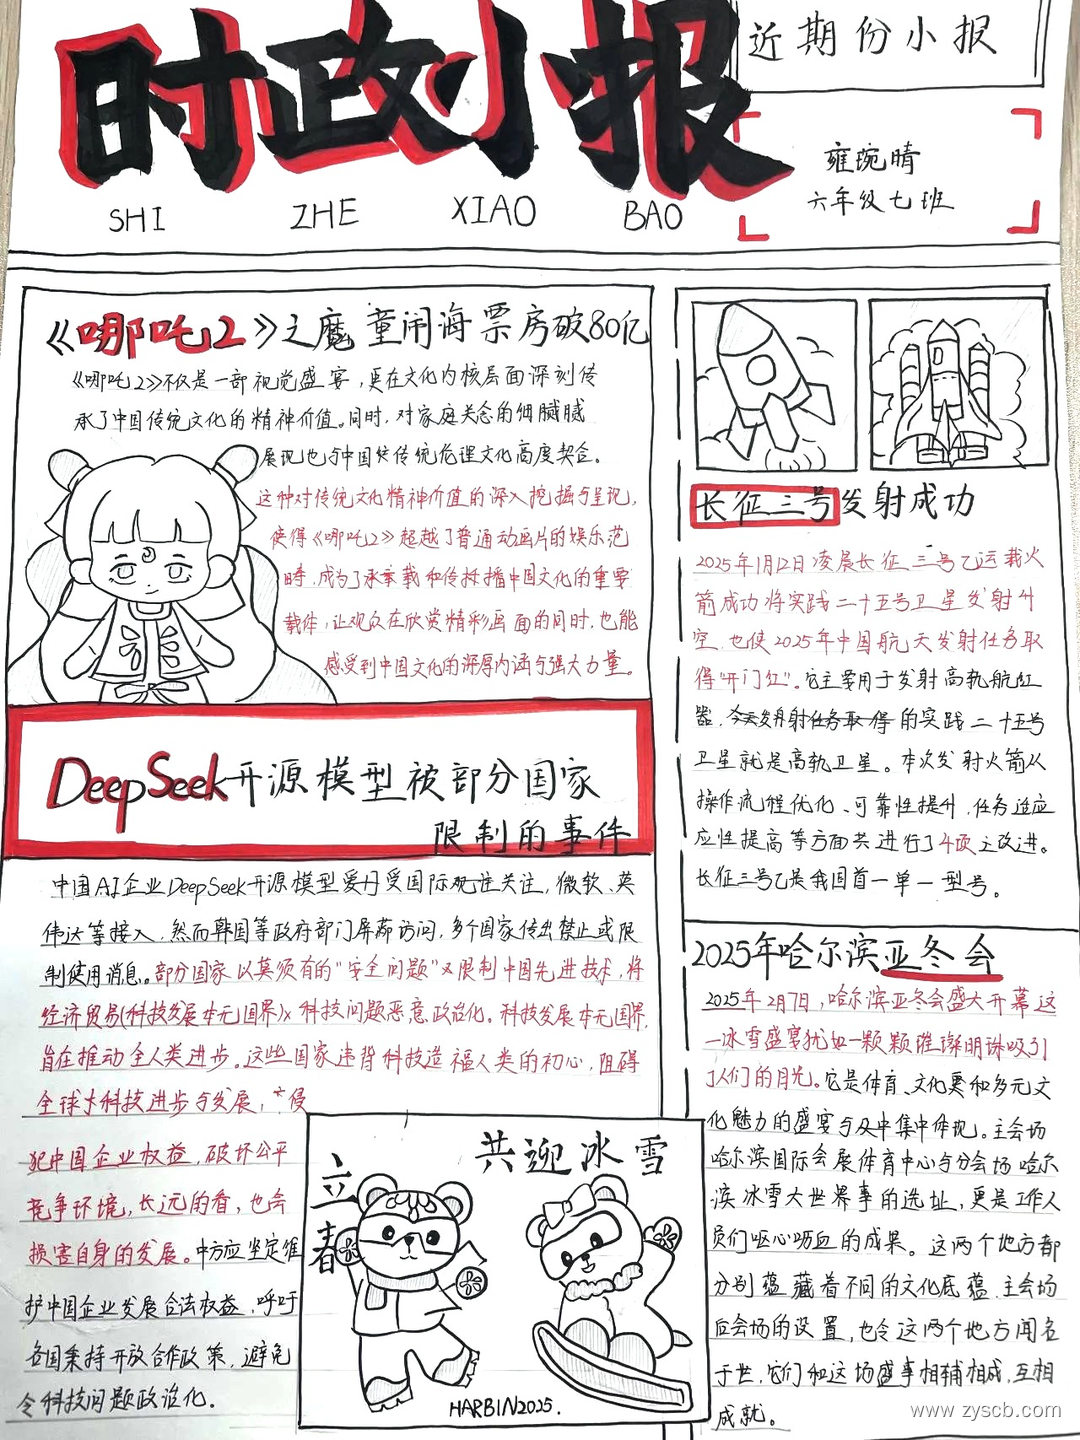 时政小报
SHI ZHE XIAO BAO
近期份小报
雍琬晴
六年级七班
《哪吒2》之魔童闹海票房破80亿
《哪吒2》不仅是一部视觉盛宴，更在文化内核层面深刻传
承了中国传统文化的精神价值。同时，对家庭关念的细腻感
展现也与中国传统伦理文化高度契合。
这种对传统文化精神价值的深入挖掘与呈现，
使得《哪吒2》超越了普通动画片的娱乐范
畴，成为了承载和传播中国文化的重要
载体，让观众在欣赏精彩画面的同时，也能
感受到中国文化的深厚内涵与强大力量。
DeepSeek开源模型被部分国家
限制的事件
中国AI企业DeepSeek开源模型受国际观注关注，微软、英
伟达等接入，然而韩国等政府部门屏蔽访问，多个国家传出禁止或限
制使用消息。部分国家以莫须有的"安全问题"又限制中国先进技术，将
经济贸易(科技发展本无国界)x科技问题恶意政治化。科技发展本无国界，
旨在推动全人类进步。这些国家违背科技造福人类的初心，阻碍
全球大科技进步与发展，侵
犯中国企业权益，破坏公平
竞争环境，长远的看，也会
损害自身的发展。中方应坚定维
护中国企业发展合法权益，呼吁
各国秉持开放合作政策，避免
令科技问题政治化.
立春
共迎冰雪
HARBIN2025.
长征三号发射成功
2025年1月12日凌晨长征三号乙运载火
箭成功将实践二十五号卫星发射升
空，也使2025年中国航天发射任务取
得"开门红"。它主要用于发射高轨航缸
器，今天发射任务取得的实践二十五号
卫星就是高轨卫星。本次发射火箭从
操作流程优化、可靠性提升、任务适应
应性提高等方面共进行了4项主改进。
长征三号乙是我国首一单一型号。
2025年哈尔滨亚冬会
2025年2月7日，哈尔滨亚冬会盛大开幕这
一冰雪盛宴犹如一颗颗璀璨明珠吸引
了人们的目光。它是体育、文化奥和多元文
化魅力的盛宴与又中集中体现。主会场
哈尔滨国际会展体育中心与分会场哈尔
滨冰雪大世界事的选址，更是工作人
员们呕心呖血的成果。这两个地方都
分别蕴藏着不同的文化底蕴，主会场
后会场的设置，也令这两个地方闻名
于世，它们和这场盛事相辅相成，互相
成就。
www.zyscb.com